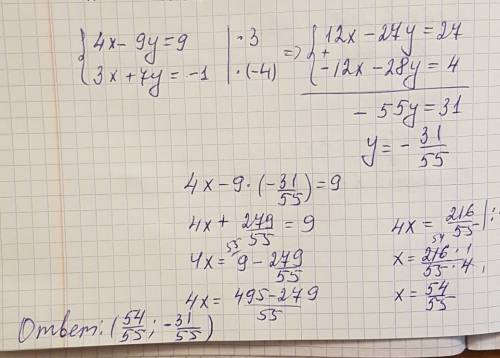 {4x - 9y = 9 | · 3 => {12x - 27y = 27
{3x + 7y = -1 | · (-4) + {-12x - 28y = 4
- 55y = 31
y = - 31/55
4x - 9 · (-31/55) = 9
4x + 279/55 = 9
4x = 9 - 279/55
4x = 495-279/55
4x = 216/55 | :
x = 216 · 1/55 · 4
x = 54/55
Ответ: (54/55; -31/55)